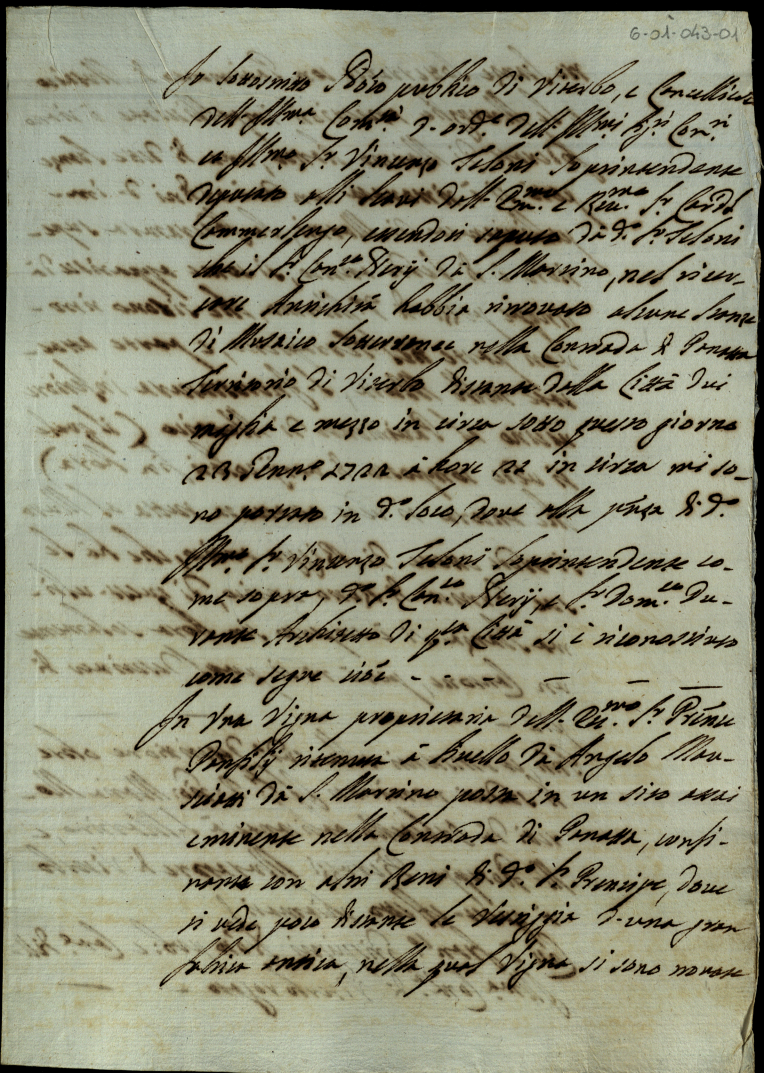 6-01-043-01
Io sottoscritto Not:o publico di Viterbo, e Cancelliere
dell'Ill:ma Com:tà d'ord:e dell'Ill:mi Sig:ri Con:ri
et Ill:mo S:r Vincenzo Teloni Soprintendente
deputato alli Scavi dell'Em:mo e Rev:mo S:r Card:l
Commerlengo, essendosi saputo dà d:o S:r Teloni
che il S:r Can:co Nerij dà S. Martino, nel ricer-
care Antichità habbia ritrovato alcune stanze
di Musaico sotterranee nella Contrada di
Territorio di Viterbo distante dalla Città dui
miglia e mezzo in circa sotto questo giorno
23 Genn:o à hore 22 in circa mi so-
no portato in d:o loco, dove alla p̃nza di d:o
Ill:mo S:r Vincenzo Teloni Soprintendente co-
me sopra, d:o S:r Can:co Nerij, e S:r Dom:co Du-
rante Architetto di q:ta Città si è riconosciuto
come segue cioè - - - -
In Una Vigna proprietaria dell'Ecc:mo S:r Prñpe
Panfilij ritenuta à livello dà Angelo
dà S. Martino posta in un sito assai
eminente nella Contrada di, confi-
nante con altri Beni di d:o S:r Prencipe, dove
si vede poco distante le Vestiggia d'una gran
fabrica antica, nella qual Vigna si sono trovate